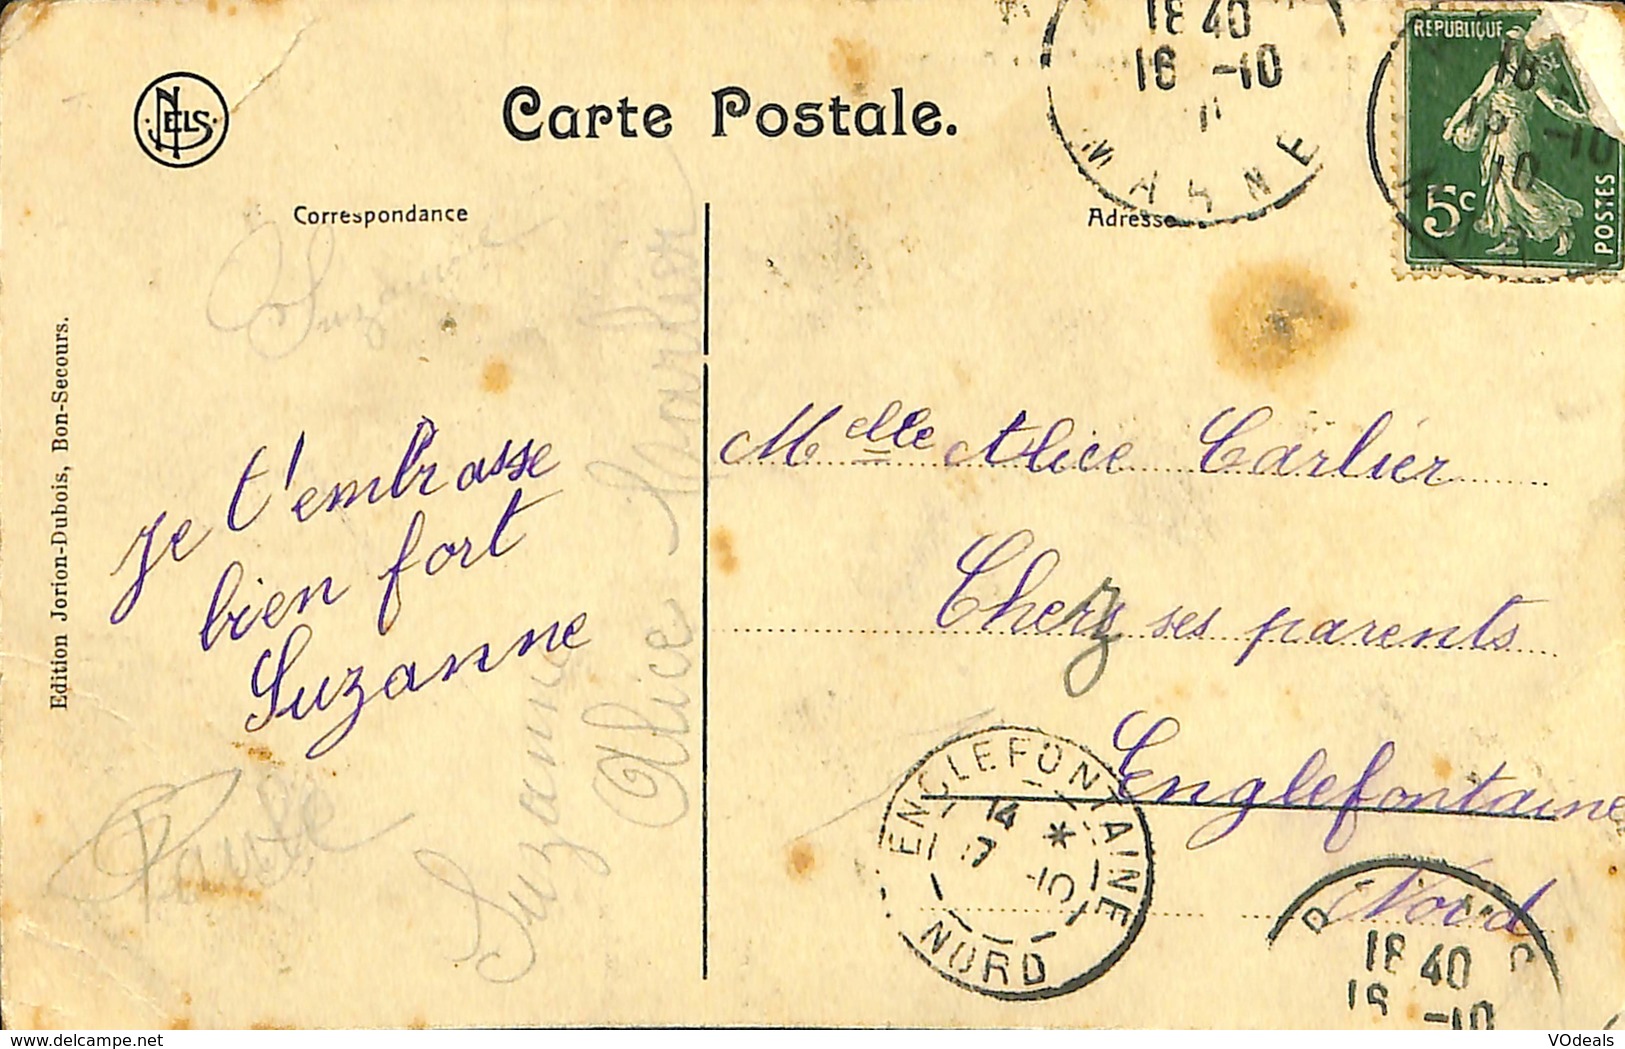 NELS
Carte Postale.
Correspondance
Adresse
18 40
16 -10
MARNE
REPUBLIQUE
5c
POSTES
18
16 -10
10
Edition Jorion-Dubois, Bon-Secours.
Suzanne
Je t'embrasse
bien fort
Suzanne
Suzanne
Alice Carlier
Paule
Melle Alice Carlier
Chez ses parents
Englefontaine
Nord
ENGLEFONTAINE
14 *
17 -10
NORD
18 40
16 -10
VOdeals